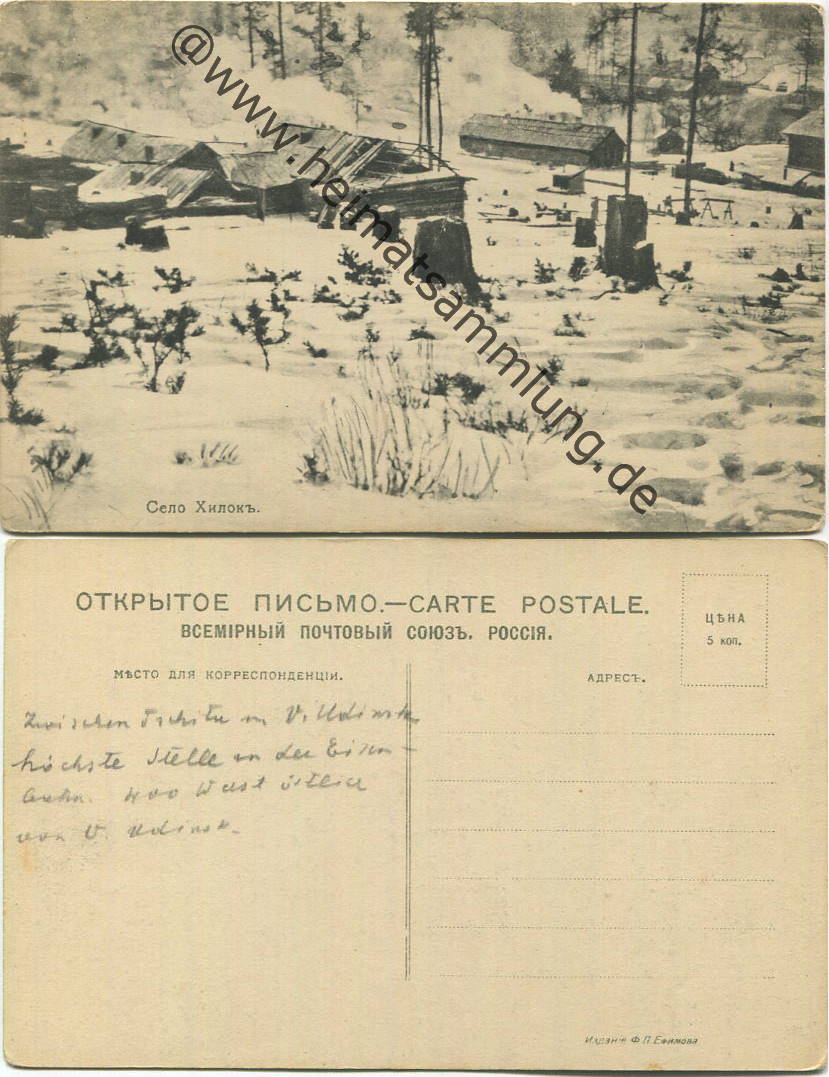 @www.heimatsammlung.de
Село Хилокъ.
ОТКРЫТОЕ ПИСЬМО.—CARTE POSTALE.
ВСЕМІРНЫЙ ПОЧТОВЫЙ СОЮЗЪ. РОССІЯ.
ЦѢНА
5 коп.
МѢСТО ДЛЯ КОРРЕСПОНДЕНЦІИ.
АДРЕСЪ.
Zwischen Tschita u V. Udinsk
höchste Stelle an der Eisen-
bahn. 400 Werst östlich
von V. Udinsk.
Изданіе Ф.П.Ефимова